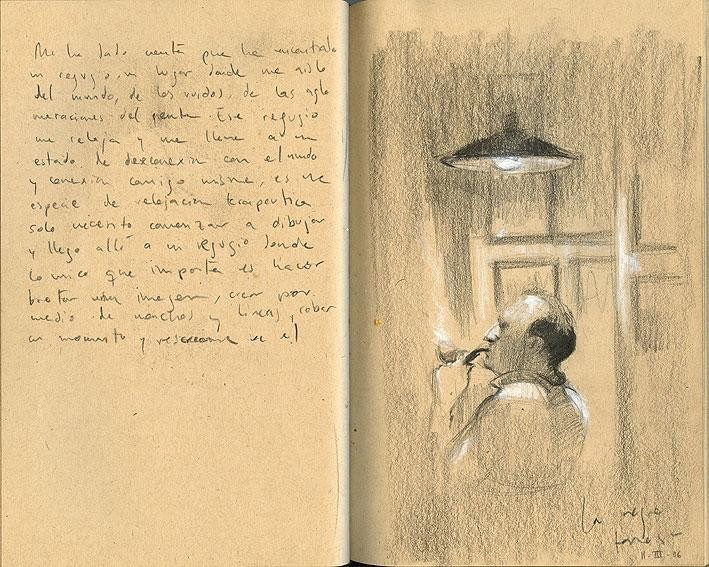 Me he dado cuenta que he encontrado
un refugio, un lugar donde me aislo
del mundo, de los ruidos, de las aglo
meraciones del gente. Ese refugio
me relaja y me lleva a un
estado de desconexion con el mundo
y conexion conmigo mismo, es una
especie de relajacion terapeutica
solo necesito comenzar a dibujar
y llego allí a un refugio donde
lo unico que importa es hacer
brotar una imagen, crear por
medio de manchas y lineas, robar
un momento y en el
La
11-III-06